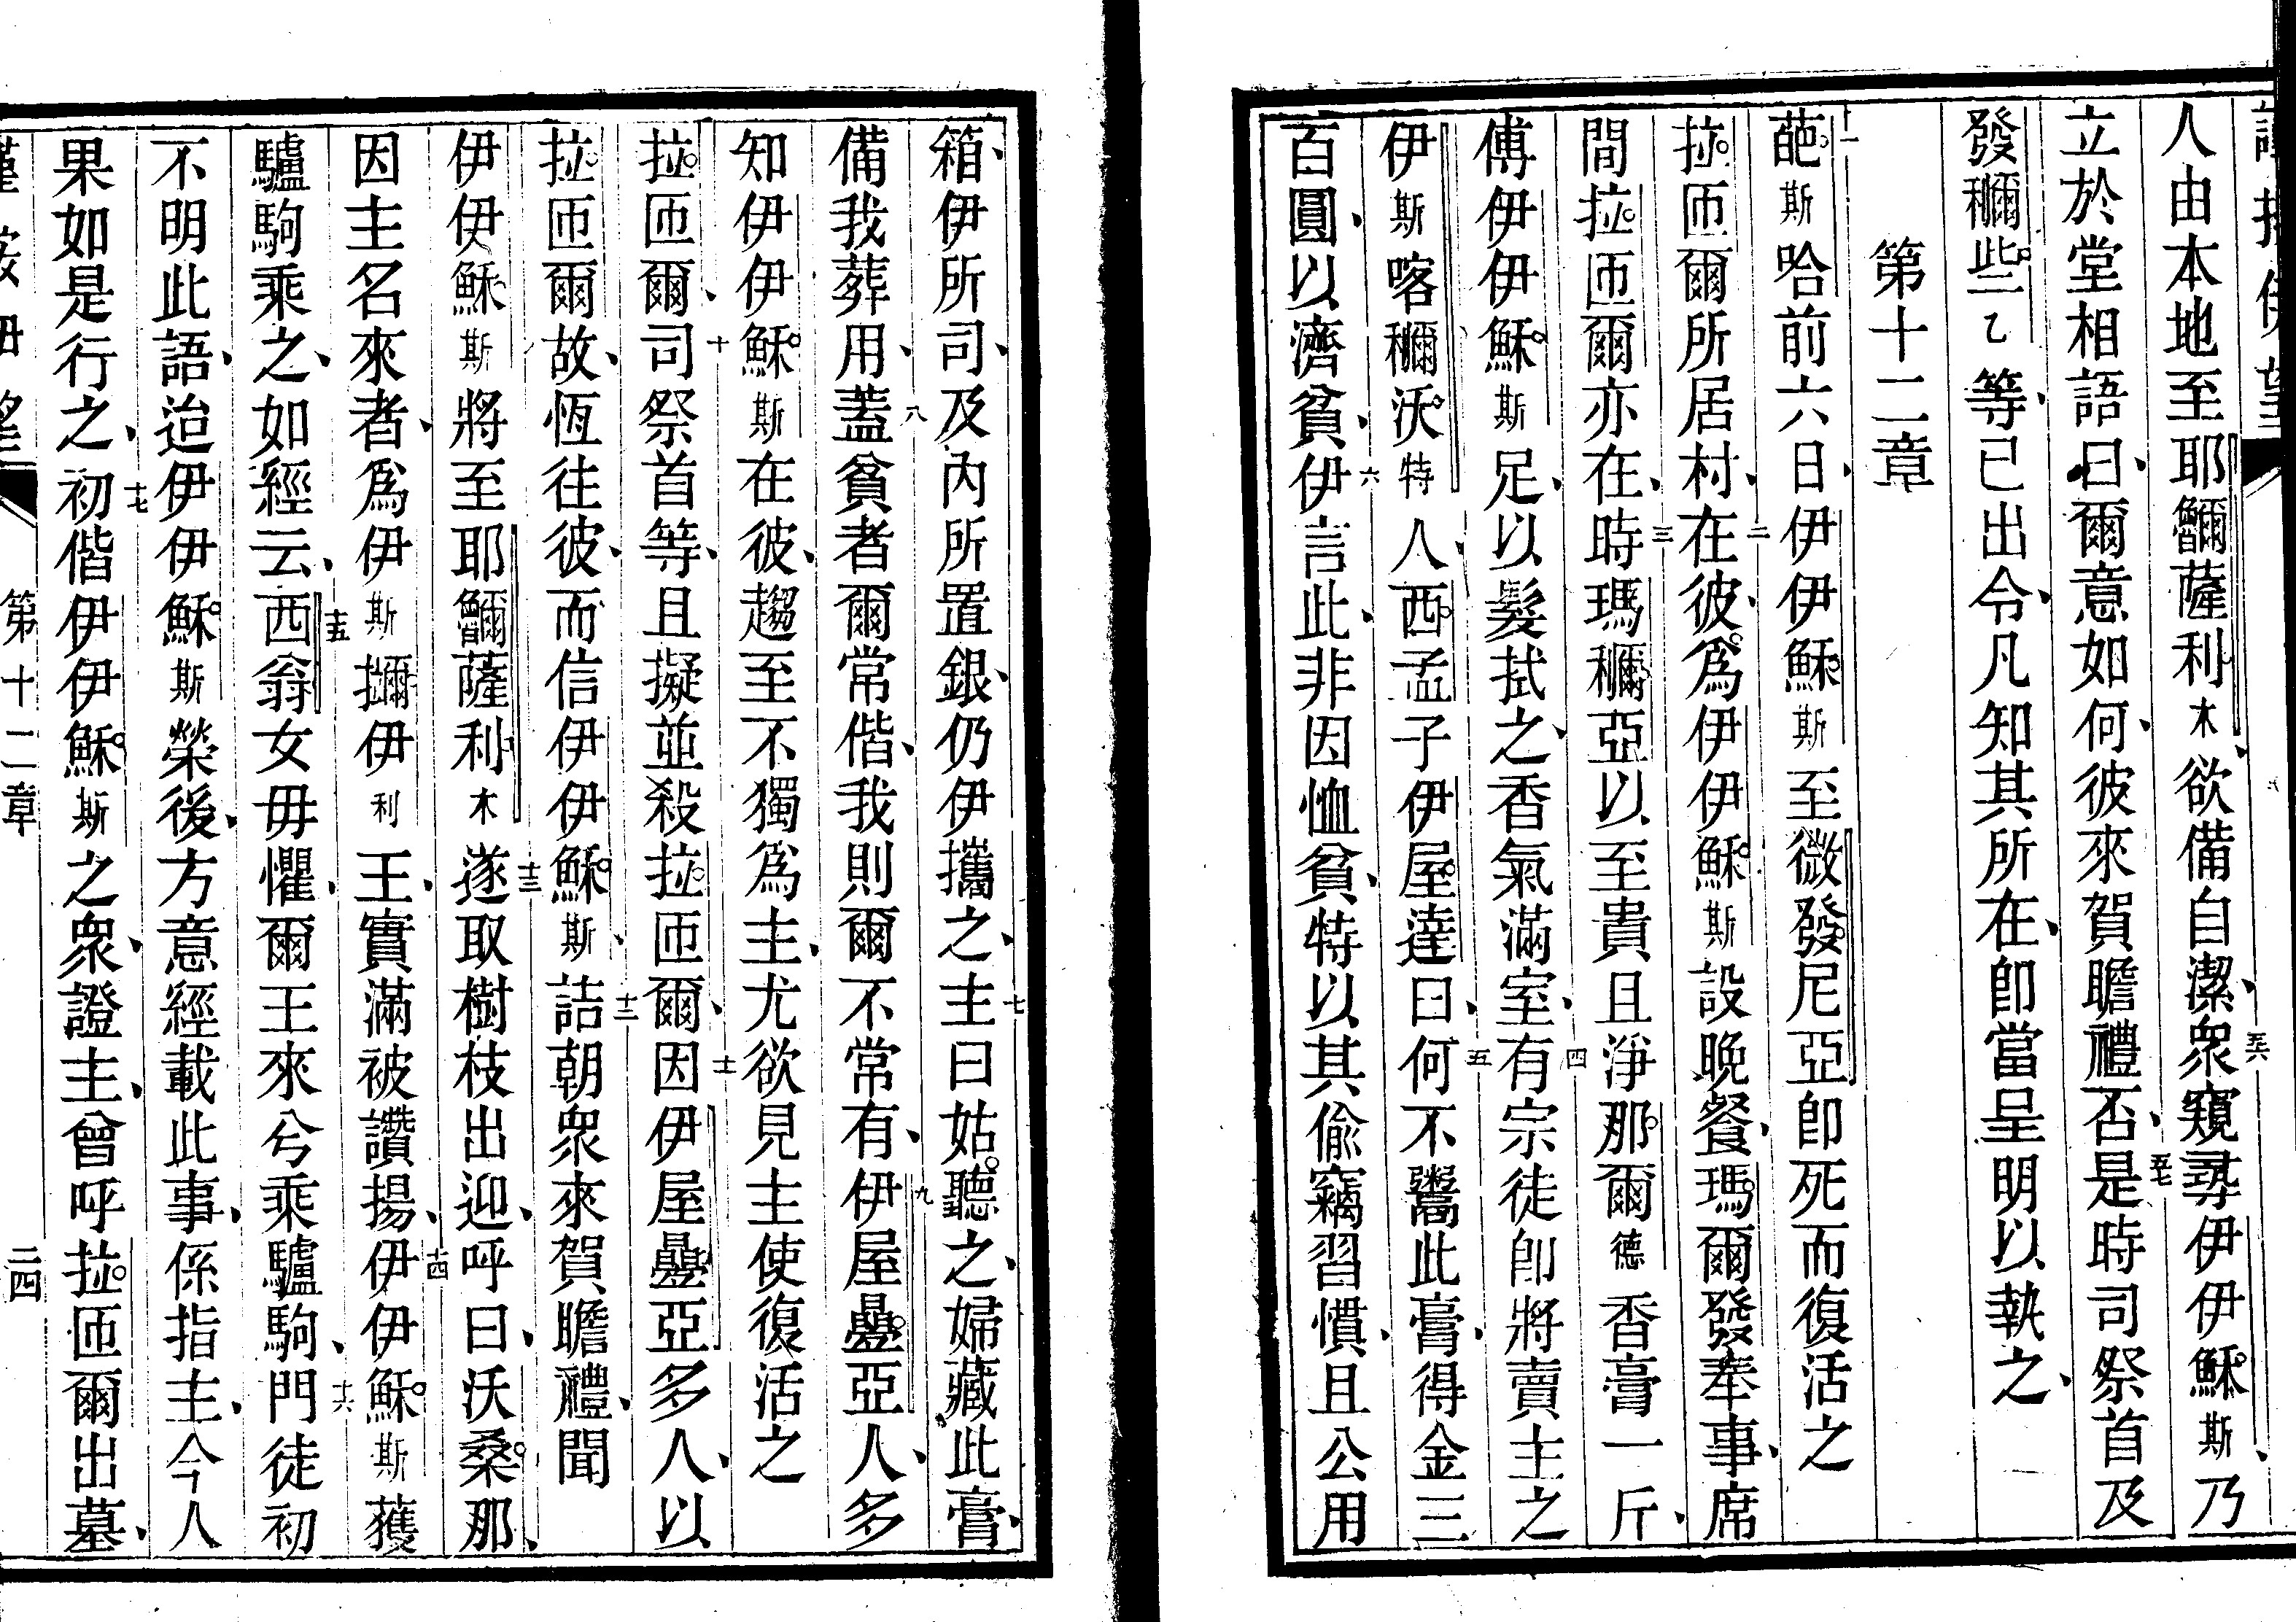 人由本地至耶𪡃薩利木、欲備自潔、五六衆窺尋伊伊穌斯、乃
立於堂相語曰、爾意如何、彼來賀瞻禮否、五七是時司祭首及
發穪些乙等、已出令、凡知其所在、卽當呈明以執之、
第十二章
一葩斯哈前六日、伊伊穌斯至微發尼亞卽死而復活之
拉匝爾所居村、二在彼、爲伊伊穌斯設晚餐、瑪爾發奉事、席
間拉匝爾亦在、三時瑪穪亞以至貴且淨那爾德香膏一斤、
傅伊伊穌斯足、以髮拭之、香氣滿室、四有宗徒卽將賣主之
伊斯喀穪沃特人、西孟子伊屋達曰、五何不鬻此膏、得金三
百圓、以濟貧、六伊言此、非因恤貧、特以其偷竊習慣、且公用
箱、伊所司、及內所置銀、仍伊攜之、七主曰姑聽之、婦藏此膏、
備我葬用、八蓋貧者爾常偕、我則爾不常有、九伊屋疊亞人、多
知伊伊穌斯在彼、趨至不獨爲主、尤欲見主使復活之
拉匝爾、十司祭首等、且擬並殺拉匝爾、十一因伊屋疊亞多人、以
拉匝爾故、恆往彼、而信伊伊穌斯、十二詰朝衆來賀瞻禮、聞
伊伊穌斯將至耶𪡃薩利木、十三遂取樹枝出迎、呼曰、沃桑那、
因主名來者、爲伊斯擟伊利王、實滿被讚揚、十四伊伊穌斯獲
驢駒乘之、如經云、十五西翁女毋懼、爾王來兮乘驢駒、十六門徒初
不明此語、迨伊伊穌斯榮後、方意經載此事、係指主、今人
果如是行之、十七初偕伊伊穌斯之衆、證主、曾呼拉匝爾出墓、
第十二章 二四